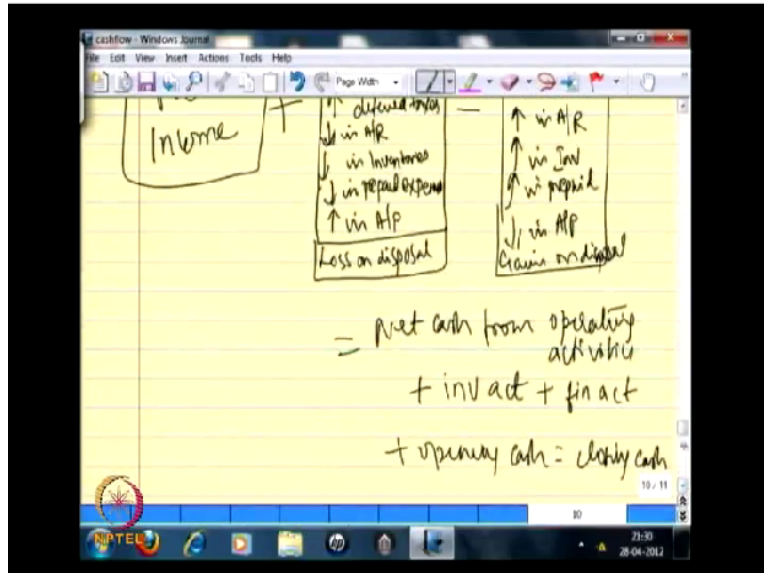 cashflow - Windows Journal
File Edit View Insert Actions Tools Help
Page Width
Income
+
↑ deferred taxes
↓ in A/R
↓ in Inventories
↓ in prepaid expense
↑ in A/P
Loss on disposal
—
↑ in A/R
↑ in Inv
↑ in prepaid
↓ in A/P
Gain on disposal
= Net cash from operating
activities
+ inv act + fin act
+ opening cash = closing cash
10 / 11
10
NPTEL
hp
21:30
28-04-2012